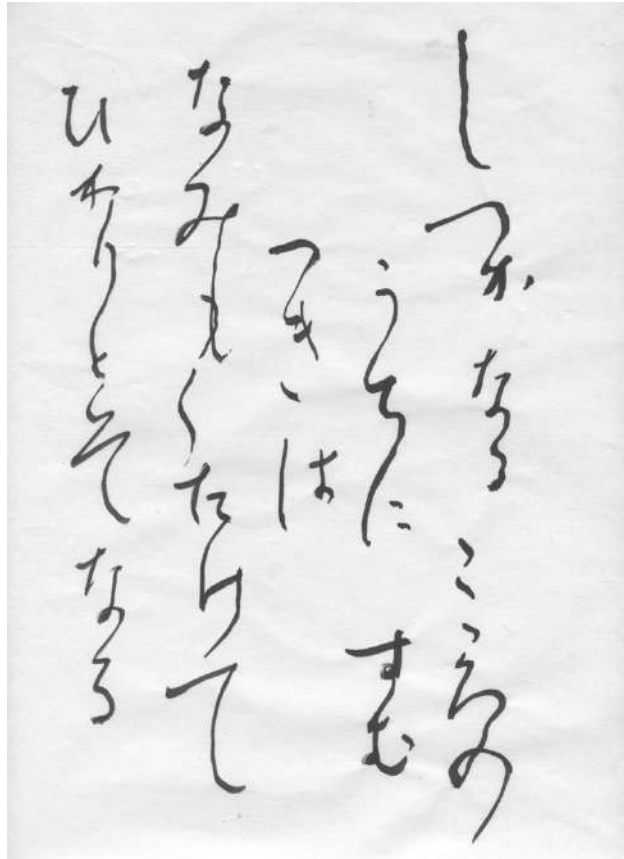 しつかなるこゝろの
うちにすむ
つきは
なみもくたけて
ひかりとそなる